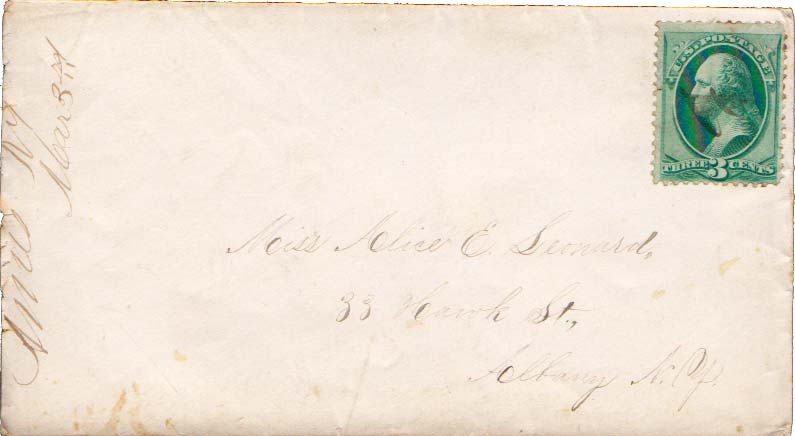 U.S. POSTAGE
THREE 3 CENTS
Miss Alice E. Leonard,
33 Hawk St.,
Albany N.Y.
N Y
Mar 3